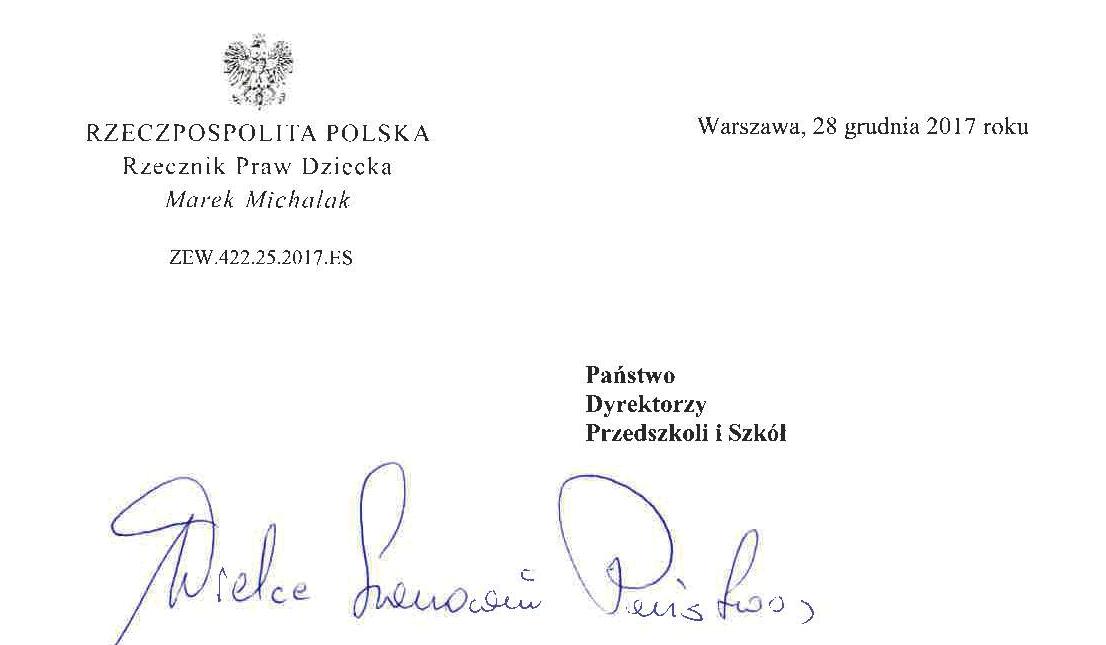 RZECZPOSPOLITA POLSKA
Rzecznik Praw Dziecka
Marek Michalak
ZEW.422.25.2017.ES
Warszawa, 28 grudnia 2017 roku
Państwo
Dyrektorzy
Przedszkoli i Szkół
Wielce Szanowni Państwo,